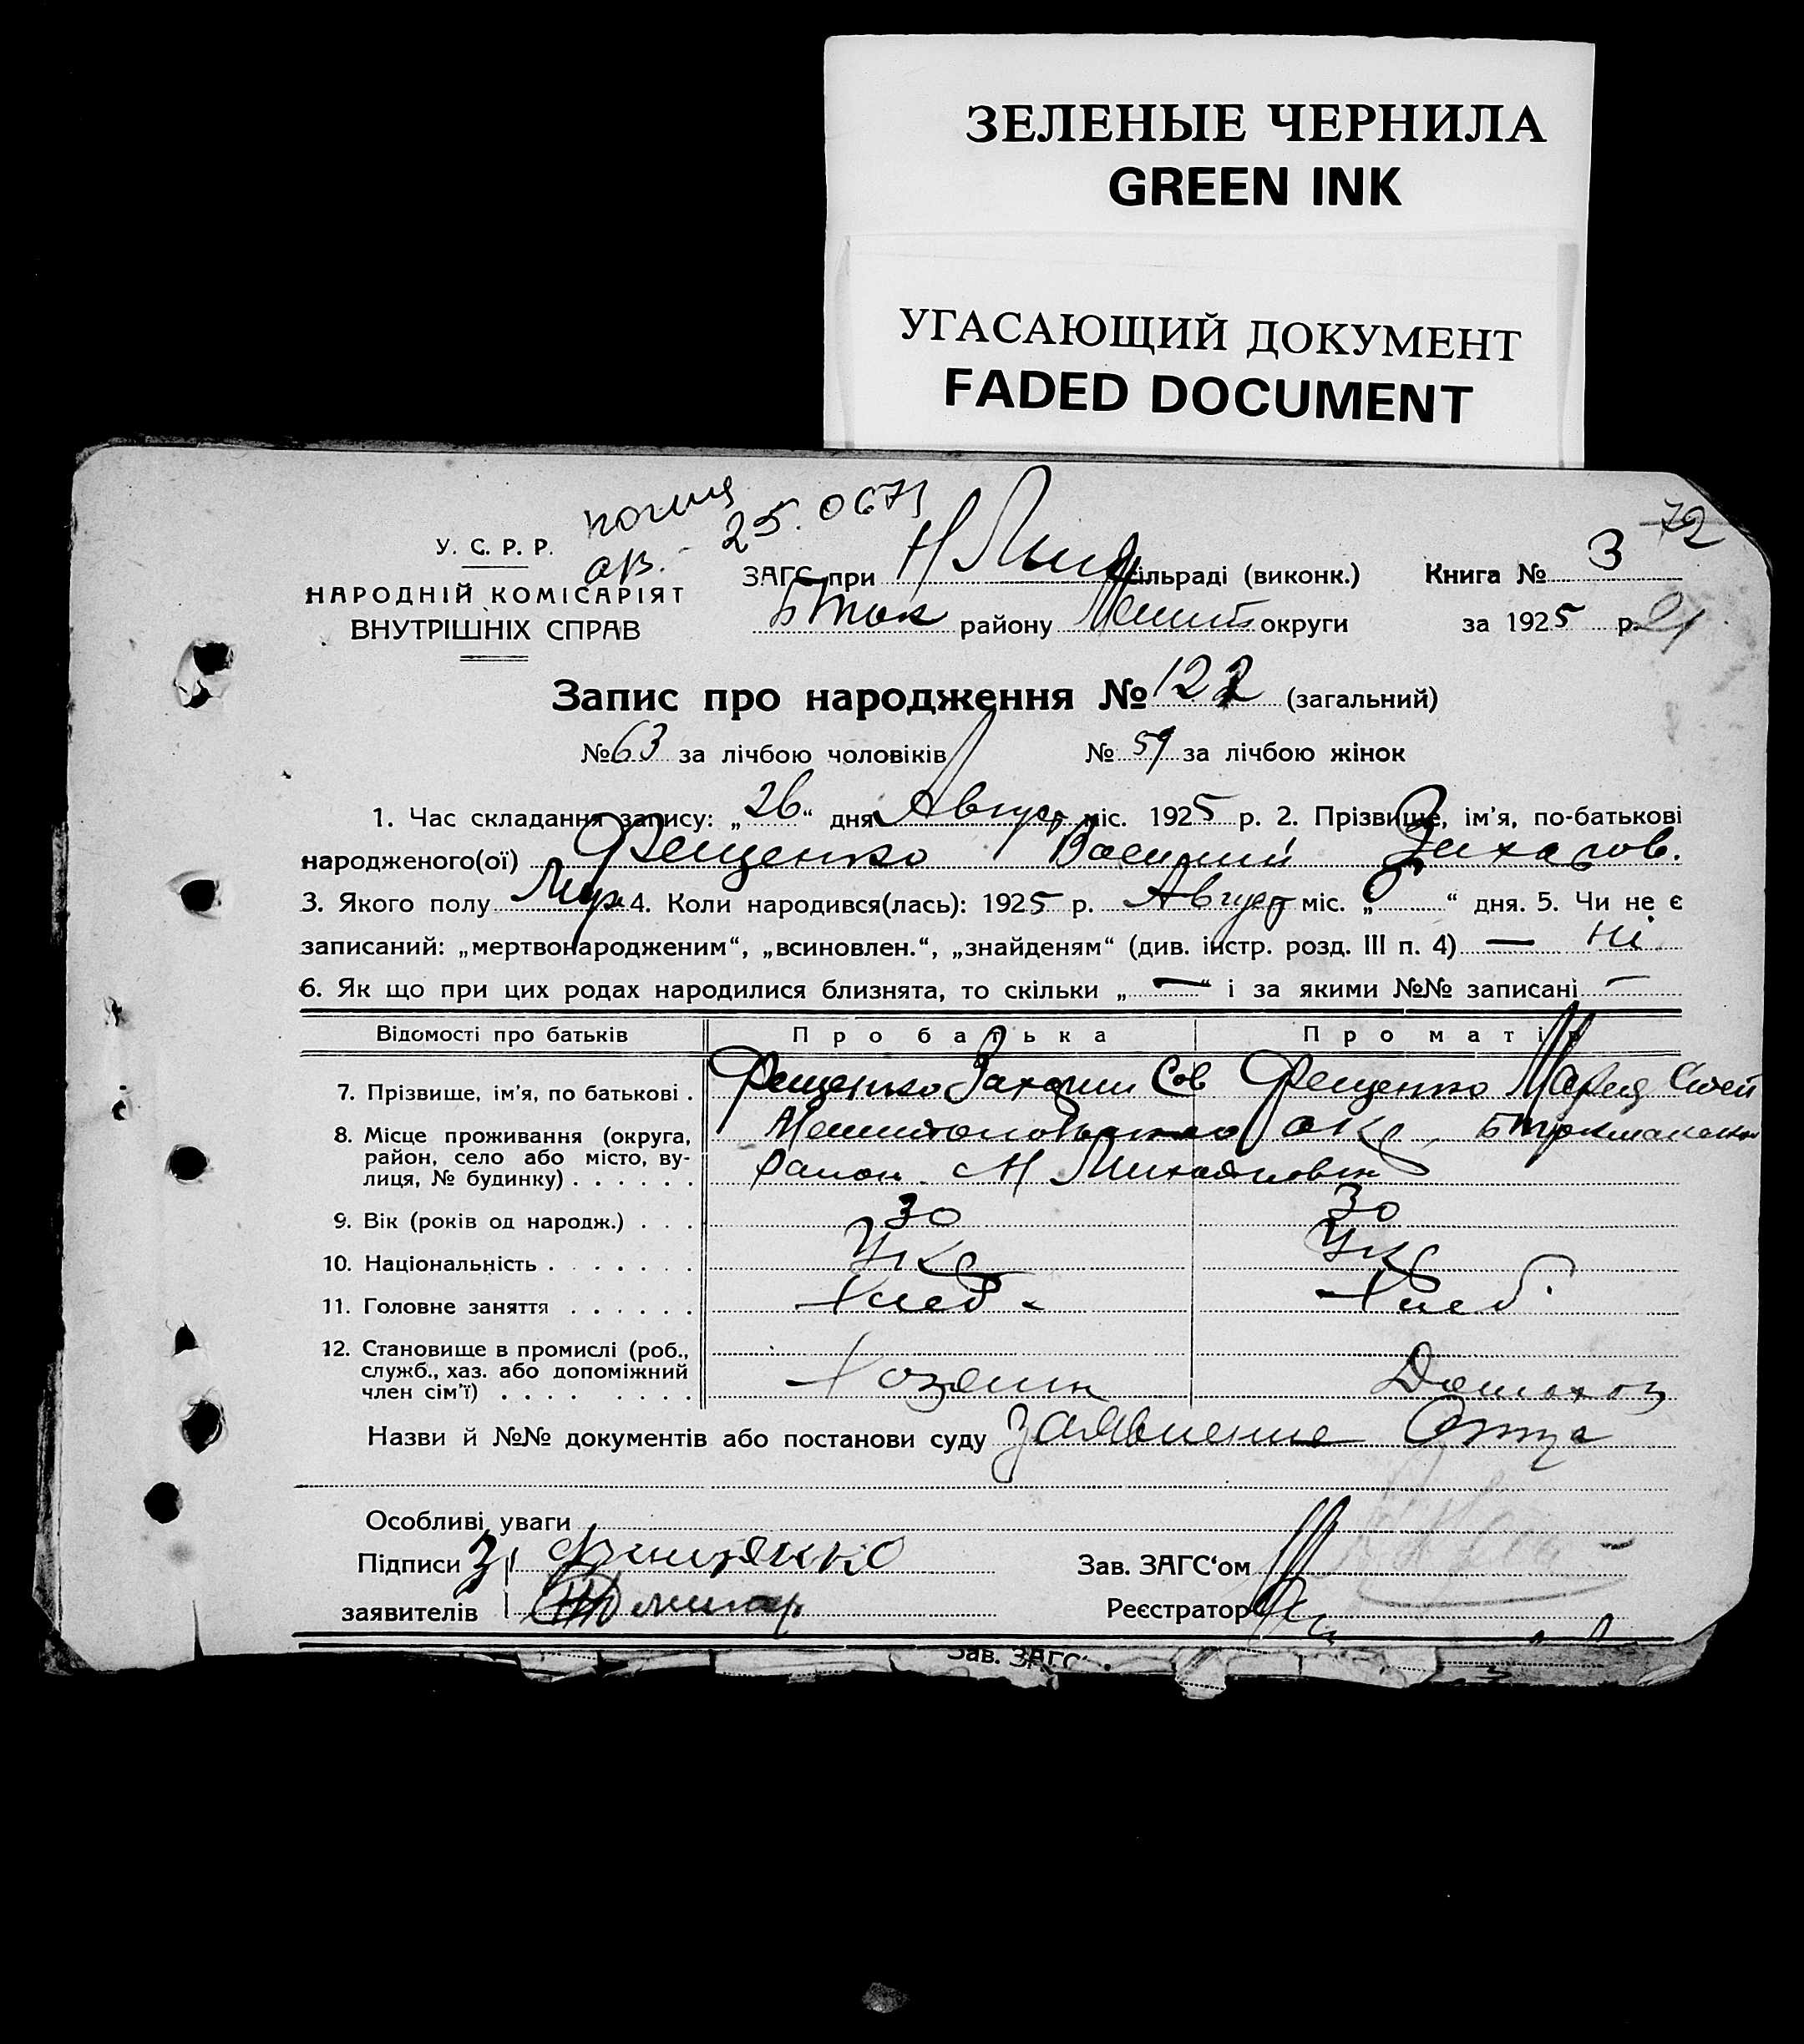 ЗЕЛЕНЫЕ ЧЕРНИЛА
GREEN INK
УГАСАЮЩИЙ ДОКУМЕНТ
FADED DOCUMENT
72
25.0671
У. С. Р. Р.
НАРОДНІЙ КОМІСАРІЯТ
ВНУТРІШНІХ СПРАВ
ЗАГС при Н Мих сільраді (виконк.) Книга № 3
Бток району Мелит округи за 1925 р. 21
Запис про народження № 122 (загальний)
№ 63 за лічбою чоловіків № 59 за лічбою жінок
1. Час складання запису: „26“ дня Август міс. 1925 р. 2. Прізвище, ім'я, по-батькові
народженого(ої) Фещенко Василий Захаров.
3. Якого полу Муж 4. Коли народився(лась): 1925 р. Август міс. „ “ дня. 5. Чи не є
записаний: „мертвонародженим“, „всиновлен.“, „знайденям“ (див. інстр. розд. III п. 4) — Ні
6. Як що при цих родах народилися близнята, то скільки „—“ і за якими №№ записані —
Відомості про батьків Про батька Про матір
7. Прізвище, ім'я, по батькові . Фещенко Захарий Сав Фещенко Мария
8. Місце проживання (округа, Мелитопольского окр
район, село або місто, ву- район. Н Михайловка
лиця, № будинку) . . . . . .
9. Вік (років од народж.) . . . 30 30
10. Національність . . . . . . . Укр Укр
11. Головне заняття . . . . . . Хлеб. Хлеб.
12. Становище в промислі (роб.,
служб., хаз. або допоміжний
член сім'ї) . . . . . . . . Хозяин Домохоз
Назви й №№ документів або постанови суду Заявление Отца
Особливі уваги
Підписи З.
заявителів
Зав. ЗАГС‘ом
Реєстратор
Зав. ЗАГС